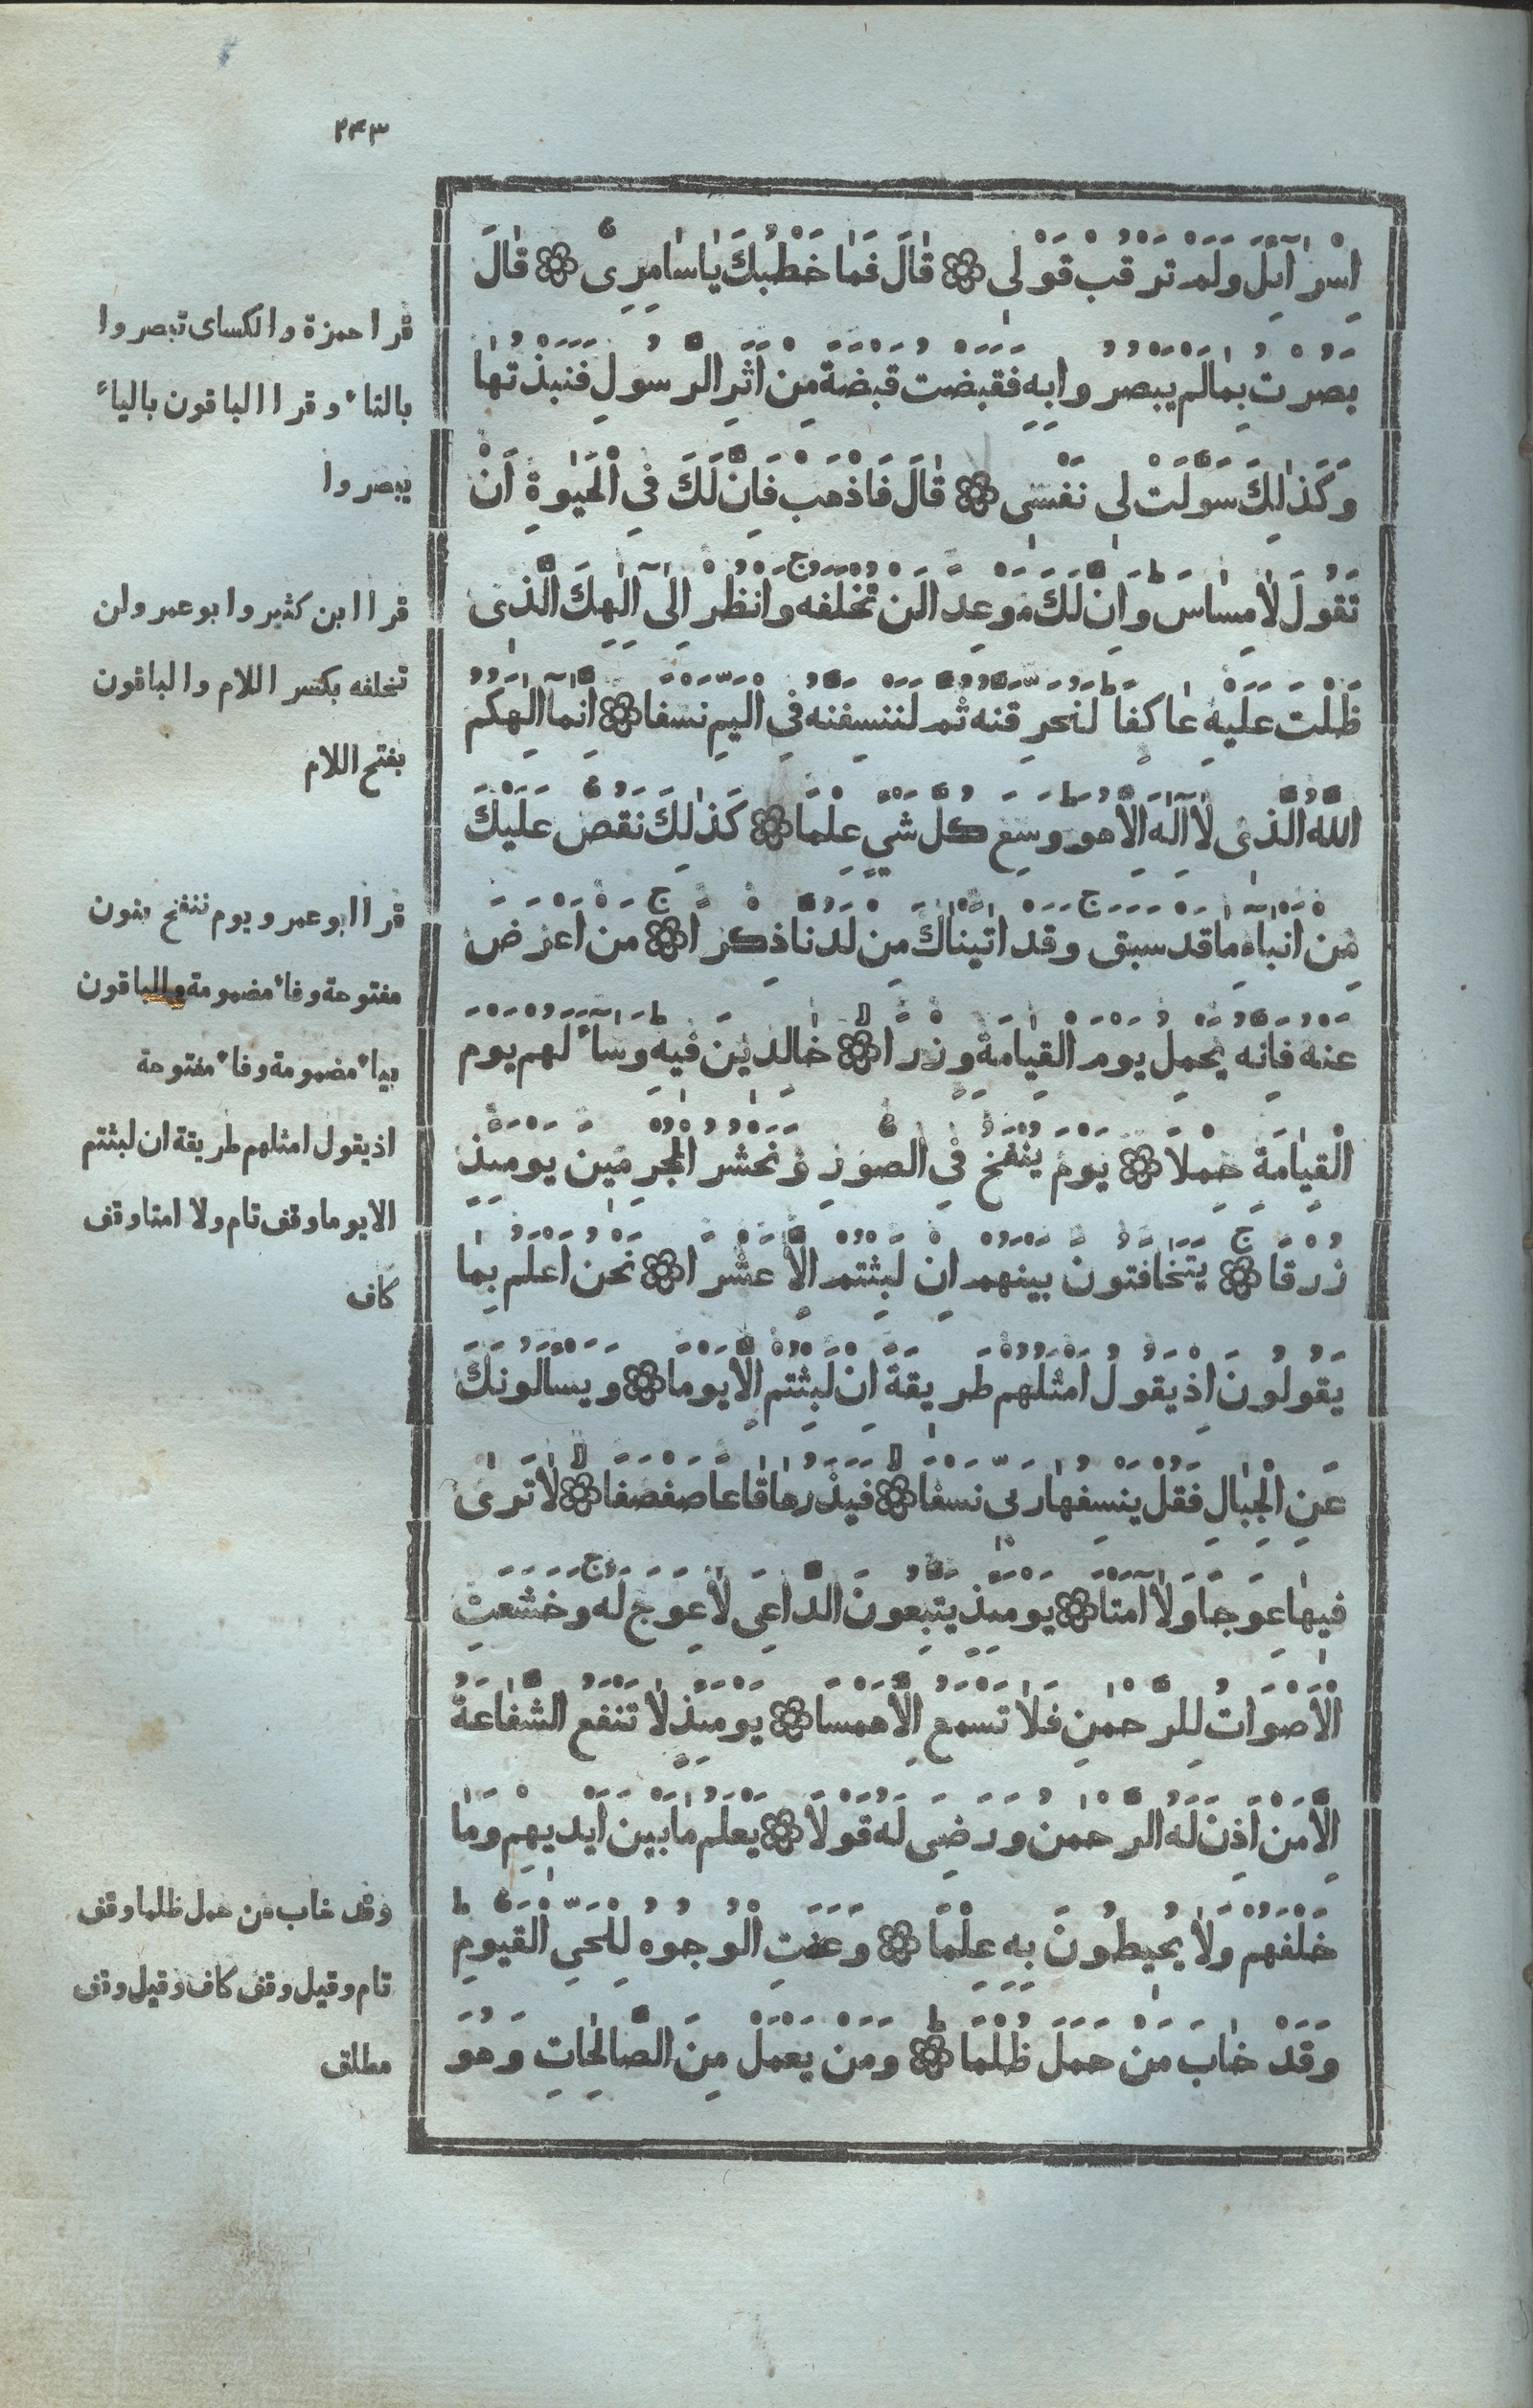 ٢٤٣
اِسْرَآئِلَ وَلَمْ تَرْقُبْ قَوْلِى ۞ قٰالَ فَمٰا خَطْبُكَ يٰاسٰامِرِىُّ ۞ قٰالَ
بَصُرْتُ بِمٰالَمْ يَبْصُرُوابِهِ فَقَبَضْتُ قَبْضَةً مِنْ اَثَرِ الرَّسُولِ فَنَبَذْتُهٰا
وَكَذٰلِكَ سَوَّلَتْ لِى نَفْسِى ۞ قٰالَ فَاذْهَبْ فَاِنَّ لَكَ فِى الْحَيٰوةِ اَنْ
تَقُولَ لٰامِسٰاسَ ط وَاِنَّ لَكَ مَوْعِدًا لَنْ تُخْلَفَهُ ج وَانْظُرْ اِلٰى اِلٰهِكَ الَّذِى
ظَلْتَ عَلَيْهِ عٰاكِفًا ط لَنُحَرِّقَنَّهُ ثُمَّ لَنَنْسِفَنَّهُ فِى الْيَمِّ نَسْفًا ۞ اِنَّمٰآ اِلٰهُكُمُ
اللّٰهُ الَّذِى لٰآ اِلٰهَ اِلَّا هُوَ ط وَسِعَ كُلَّ شَىْءٍ عِلْمًا ۞ كَذٰلِكَ نَقُصُّ عَلَيْكَ
مِنْ اَنْبٰآءِ مٰاقَدْ سَبَقَ ج وَقَدْ اٰتَيْنٰاكَ مِنْ لَدُنَّا ذِكْرًا ج ۞ مَنْ اَعْرَضَ
عَنْهُ فَاِنَّهُ يَحْمِلُ يَوْمَ الْقِيٰامَةِ وِزْرًا لا ۞ خٰالِدِينَ فِيهِ ط وَسٰآءَ لَهُمْ يَوْمَ
الْقِيٰامَةِ حِمْلًا ۞ يَوْمَ يُنْفَخُ فِى الصُّورِ وَنَحْشُرُ الْمُجْرِمِينَ يَوْمَئِذٍ
زُرْقًا ج ۞ يَتَخٰافَتُونَ بَيْنَهُمْ اِنْ لَبِثْتُمْ اِلَّا عَشْرًا ۞ نَحْنُ اَعْلَمُ بِمٰا
يَقُولُونَ اِذْ يَقُولُ اَمْثَلُهُمْ طَرِيقَةً اِنْ لَبِثْتُمْ اِلَّا يَوْمًا ۞ وَيَسْاَلُونَكَ
عَنِ الْجِبٰالِ فَقُلْ يَنْسِفُهٰا رَبِّى نَسْفًا لا ۞ فَيَذَرُهٰا قٰاعًا صَفْصَفًا لا ۞ لٰا تَرٰى
فِيهٰا عِوَجًا وَلٰآ اَمْتًا ۞ يَوْمَئِذٍ يَتَّبِعُونَ الدَّاعِىَ لٰا عِوَجَ لَهُ ج وَخَشَعَتِ
الْاَصْوَاتُ لِلرَّحْمٰنِ فَلٰا تَسْمَعُ اِلَّا هَمْسًا ۞ يَوْمَئِذٍ لٰا تَنْفَعُ الشَّفٰاعَةُ
اِلَّا مَنْ اَذِنَ لَهُ الرَّحْمٰنُ وَرَضِىَ لَهُ قَوْلًا ۞ يَعْلَمُ مٰا بَيْنَ اَيْدِيهِمْ وَمٰا
خَلْفَهُمْ وَلٰا يُحِيطُونَ بِهِ عِلْمًا ۞ وَعَنَتِ الْوُجُوهُ لِلْحَىِّ الْقَيُّومِ ط
وَقَدْ خٰابَ مَنْ حَمَلَ ظُلْمًا ط ۞ وَمَنْ يَعْمَلْ مِنَ الصَّالِحٰاتِ وَهُوَ
قرا حمزة والكساى تبصروا
بالتاء وقرا الباقون بالياء
يبصروا
قرا ابن كثير وابوعمرو لن
تخلفه بكسر اللام والباقون
بفتح اللام
قرا ابوعمرو يوم ننفخ بنون
مفتوحة وفاء مضمومة والباقون
بياء مضمومة وفاء مفتوحة
اذ يقول امثلهم طريقة ان لبثتم
الا يوما وقف تام ولا امتا وقف
كاف
وقد خاب من حمل ظلما وقف
تام وقيل وقف كاف وقيل وقف
مطلق